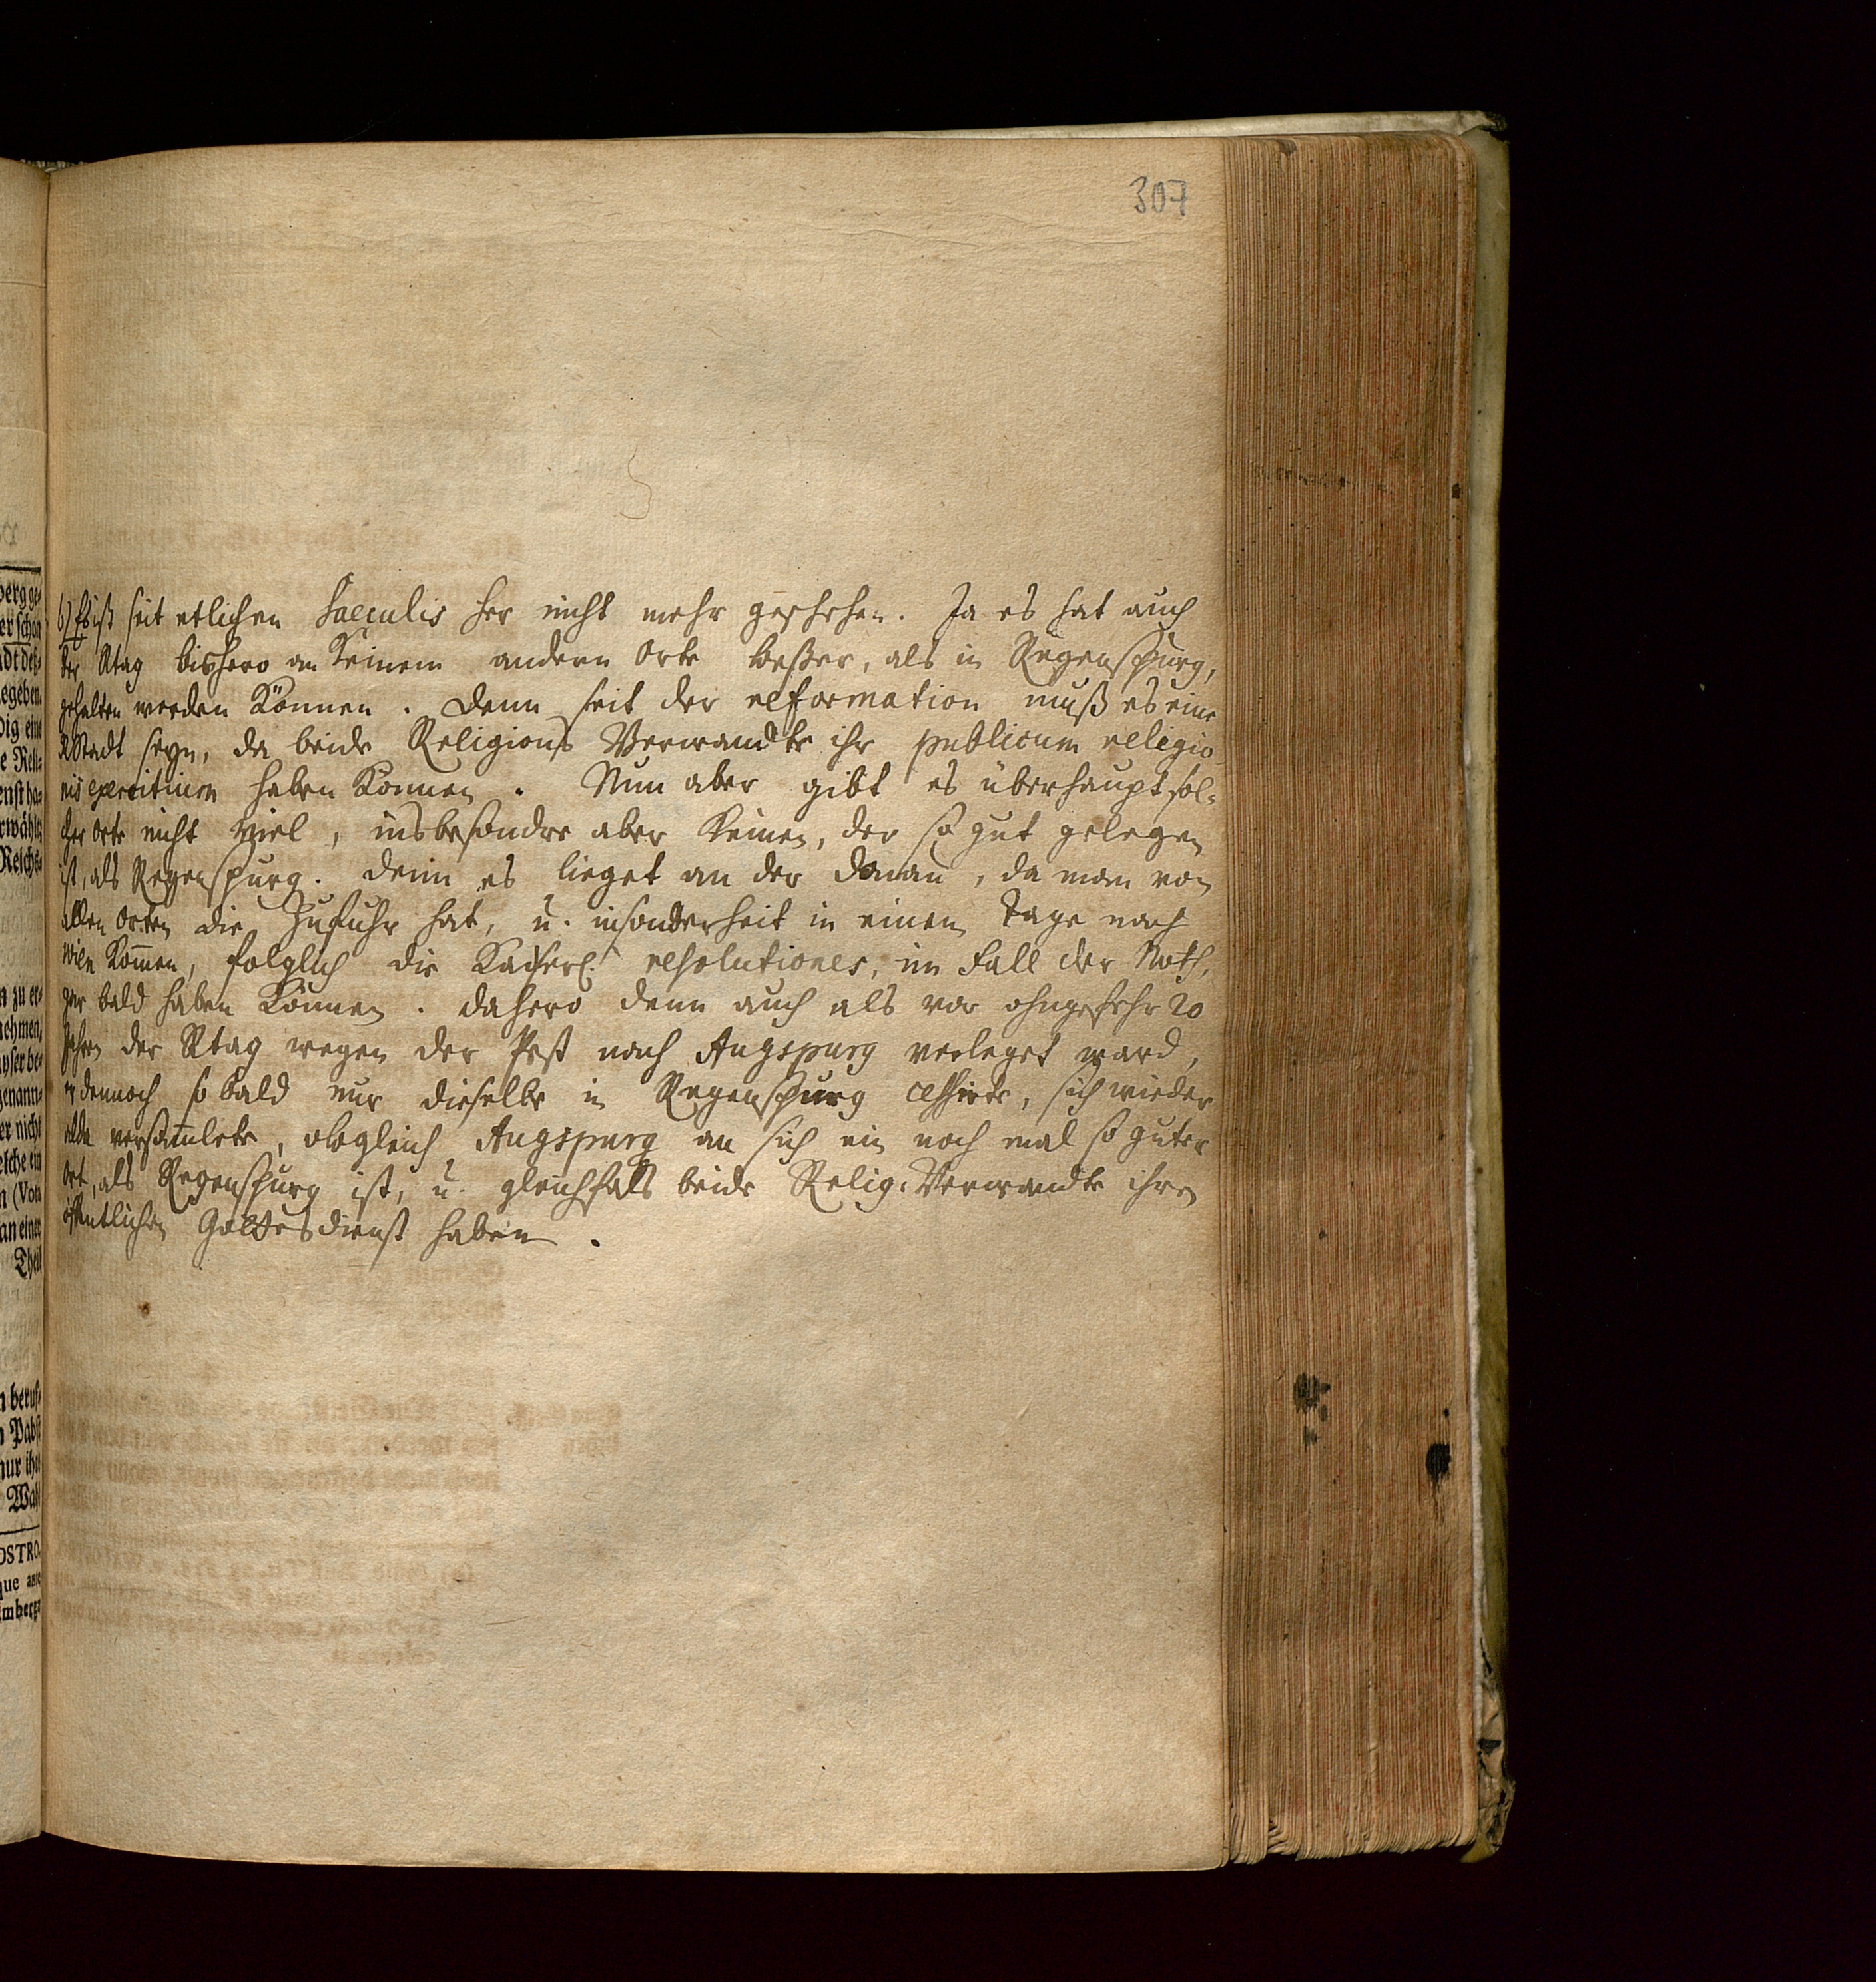 307
b) Es ist seit etlichen Saeculis her nicht mehr geschehen. Ja es hat auch
der Rtag bishero an keinem andern Orte beßer, als in Regenspurg,
gehalten werden können. Denn seit der reformation muß es eine
RStadt seyn, da beide Religions Verwandte ihr publicum religio-
nis exercitium haben können. Nun aber gibt es überhaupt sol-
cher Orte nicht viel, insbesondre aber keinen, der so gut gelegen
ist, als Regenspurg. Denn es lieget an der Donau, da man von
allen Orten die Zufuhr hat, u. insonderheit in einem Tage nach
Wien kommen, folglich die Kaiserl. resolutiones, im Fall der Noth,
gar bald haben können. Dahero denn auch als vor ohngefehr 20
Jahren der Rtag wegen der Pest nach Augspurg verleget ward,
er dennoch so bald nur dieselbe in Regenspurg cessirte, sich wieder
alda versamlete, obgleich Augspurg an sich ein noch mal so guter
Ort, als Regenspurg ist, u. gleichfals beide Relig: Verwandte ihren
öffentlichen Gottesdienst haben.